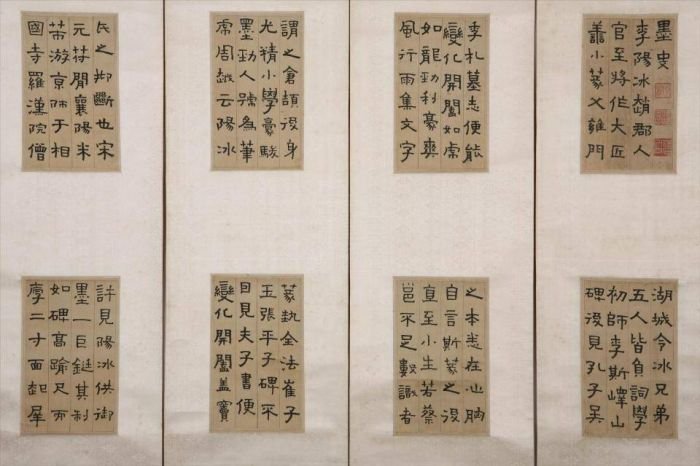 墨史
李陽冰趙郡人
官至將作大匠
善小篆父雍門
湖城令冰兄弟
五人皆負詞學
初師李斯嶧山
碑後見孔子吳
季札墓志便能
變化開闔如虎
如龍勁利豪爽
風行雨集文字
之本悉在心胸
自言斯篆之後
直至小生若蔡
邕不足數識者
謂之倉頡後身
尤精小學豪駿
墨勁人號為筆
虎周越云陽冰
篆執全法崔子
玉張平子碑不
日見夫子書便
變化開闔蓋竇
氏之抑斷也宋
元符閒襄陽米
芾游京師于相
國寺羅漢院僧
許見陽冰供御
墨一巨鋌其制
如碑高踰尺而
厚二寸面起犀